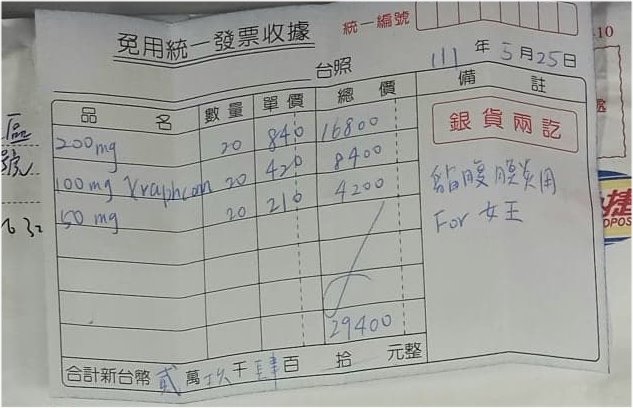 免用統一發票收據 統一編號
台照 111 年 5月25日
品名 數量 單價 總價 備註
200mg 20 840 16800
銀貨兩訖
100mg 20 420 8400
貓腹膜炎用
50 mg 20 210 4200
For 女王
29400
合計新台幣 貳 萬 玖 千 肆 百 拾 元整
區
號
10
捷